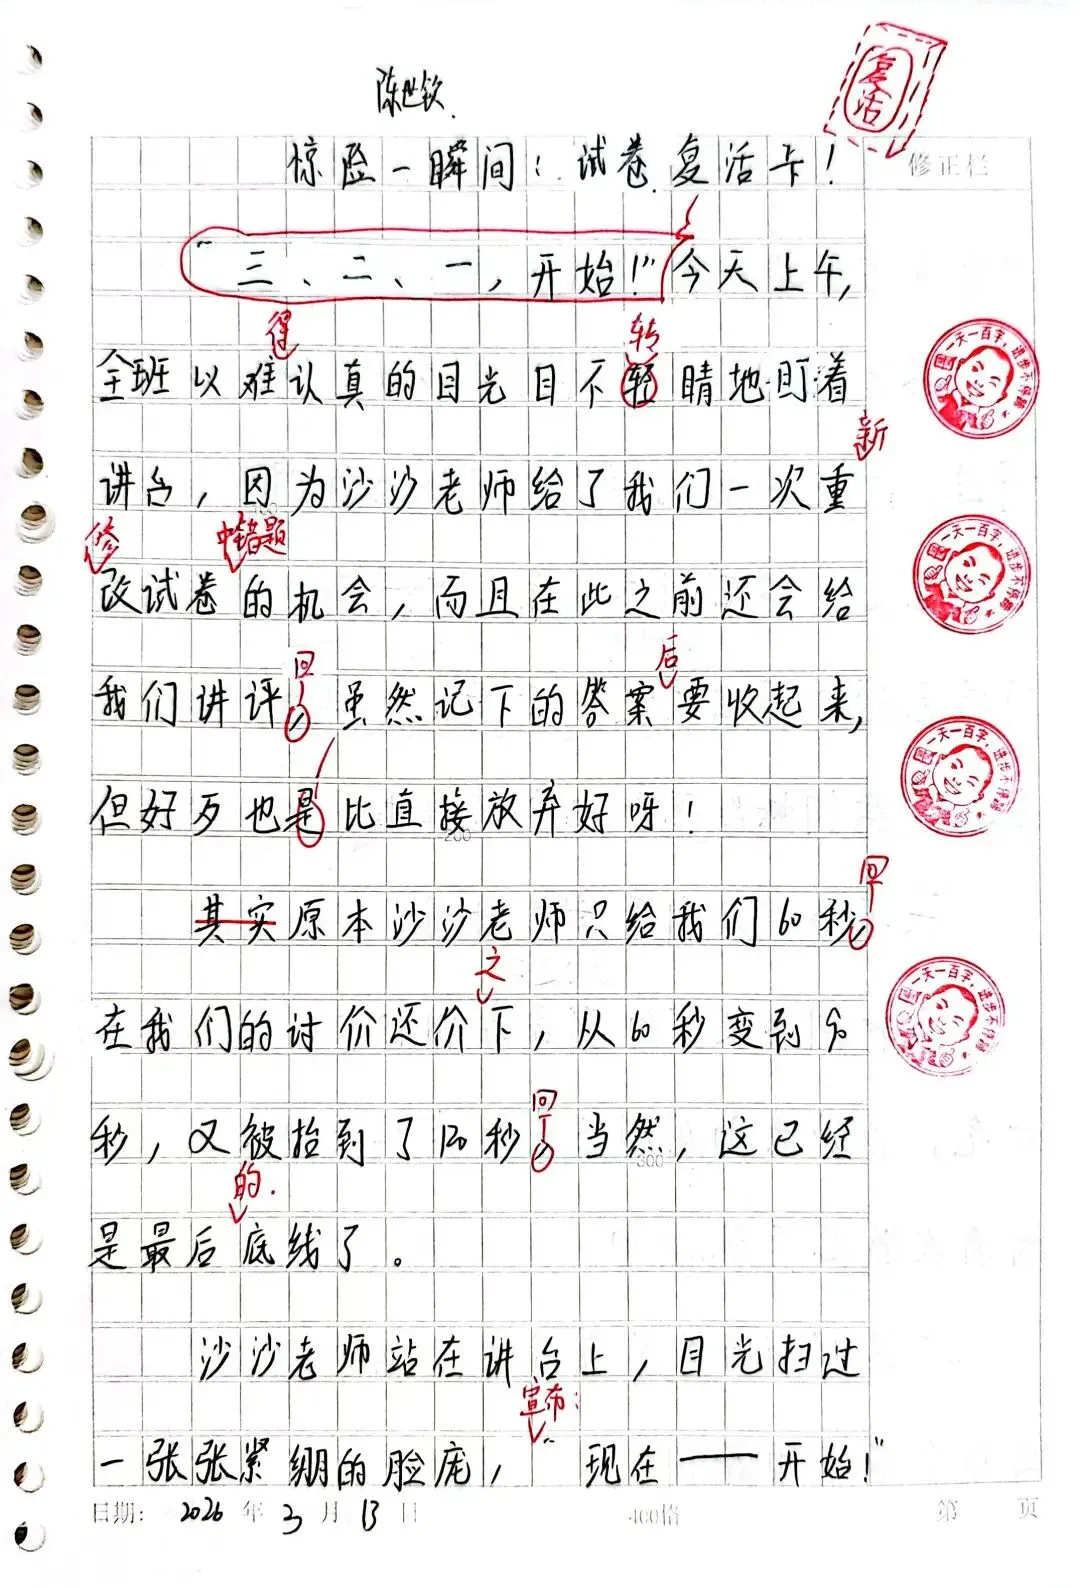 陈世钦
复活
惊险一瞬间：试卷复活卡！
修正栏
“三、二、一，开始！”今天上午，
得
转
全班以难认真的目光目不轻睛地盯着
新
讲台，因为沙沙老师给了我们一次重
修
中错题
改试卷的机会，而且在此之前还会给
回
后
我们讲评，虽然记下的答案要收起来，
但好歹也是比直接放弃好呀！
200
回
其实原本沙沙老师只给我们60秒，
之
在我们的讨价还价下，从60秒变到90
回
秒，又被抬到了120秒，当然，这已经
300
的
是最后底线了。
沙沙老师站在讲台上，目光扫过
宣布：
一张张紧绷的脸庞，“现在——开始！”
日期：2026年3月13日
400格
第 页
一天一百字，进步不停蹄
一天一百字，进步不停蹄
一天一百字，进步不停蹄
一天一百字，进步不停蹄